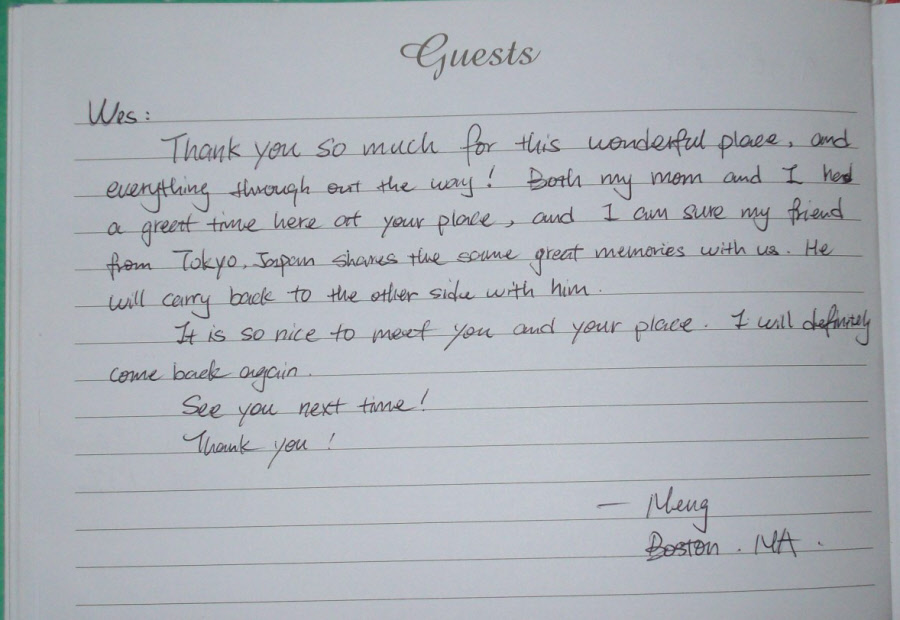 Guests
Wes:
Thank you so much for this wonderful place, and
everything through out the way! Both my mom and I had
a great time here at your place, and I am sure my friend
from Tokyo, Japan shares the same great memories with us. He
will carry back to the other side with him.
It is so nice to meet you and your place. I will definitely
come back again.
See you next time!
Thank you!
— Meng
Boston. MA.